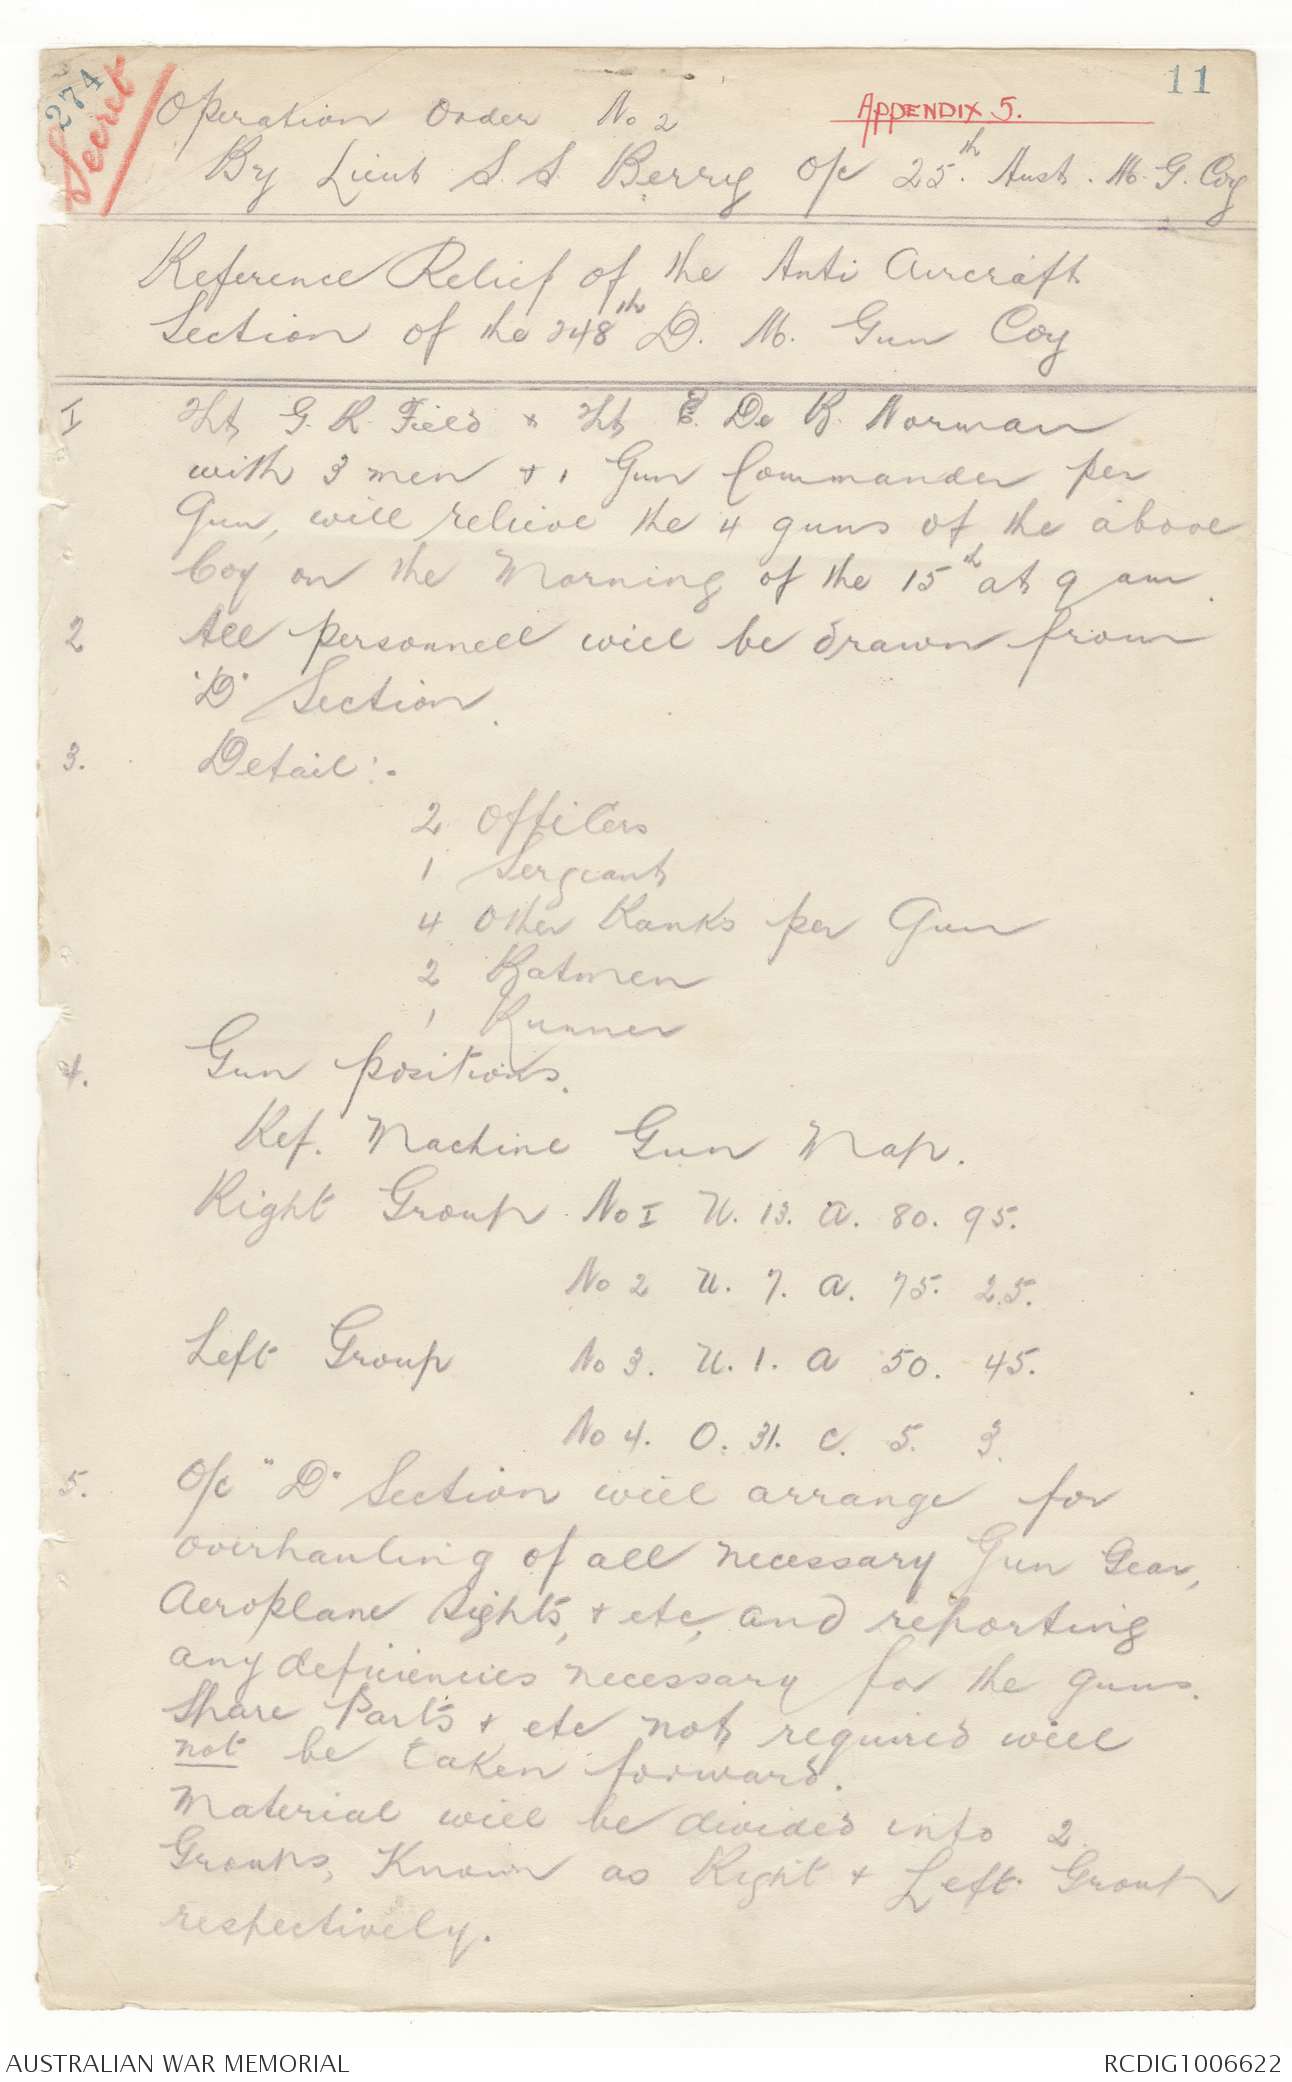 274
Secret
11
Operation Order No 2
APPENDIX 5.
By Lieut S. S. Berry o/c 25.th Aust. M. G. Coy
Reference Relief of the Anti Aircraft
Section of the 248th D. M. Gun Coy
I Lt G. R. Field + Lt E. De B. Norman
with 3 men + 1 Gun Commander per
Gun, will relieve the 4 guns of the above
Coy on the Morning of the 15th at 9 am.
2 All personnell will be drawn from
"D" Section.
3. Detail:-
2 Officers
1 Sergeant
4 Other Ranks per Gun
2 Batmen
1 Runner
4. Gun positions.
Ref. Machine Gun Map.
Right Group No I U. 13. a. 80. 95.
No 2 U. 7. a. 75. 25.
Left Group No 3. U. 1. a 50. 45.
No 4. O. 31. c. 5. 3.
5. O/c "D" Section will arrange for
overhauling of all necessary Gun Gear,
Aeroplane Sights, + etc, and reporting
any deficiencies necessary for the guns.
Spare Parts + etc not required will
not be taken forward.
Material will be divided into 2
Groups, Known as Right + Left Group
respectively.
AUSTRALIAN WAR MEMORIAL
RCDIG1006622